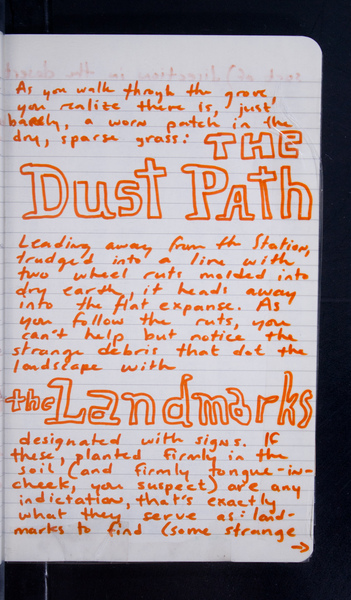 As you walk throgh the grove,
you realize there is, just
barely, a worn patch in the
dry, sparse grass: THE
Dust Path
Leading away from th Station,
trudged into a line with
two wheel ruts molded into
dry earth, it heads away
into the flat expanse. As
you follow the ruts, you
can't help but notice the
strange debris that dot the
landscape with
the Landmarks
designated with signs. If
these, planted firmly in the
soil (and firmly tongue-in-
cheek, you suspect) are any
indictation, that's exactly
what they serve as: land-
marks to find (some strange
→